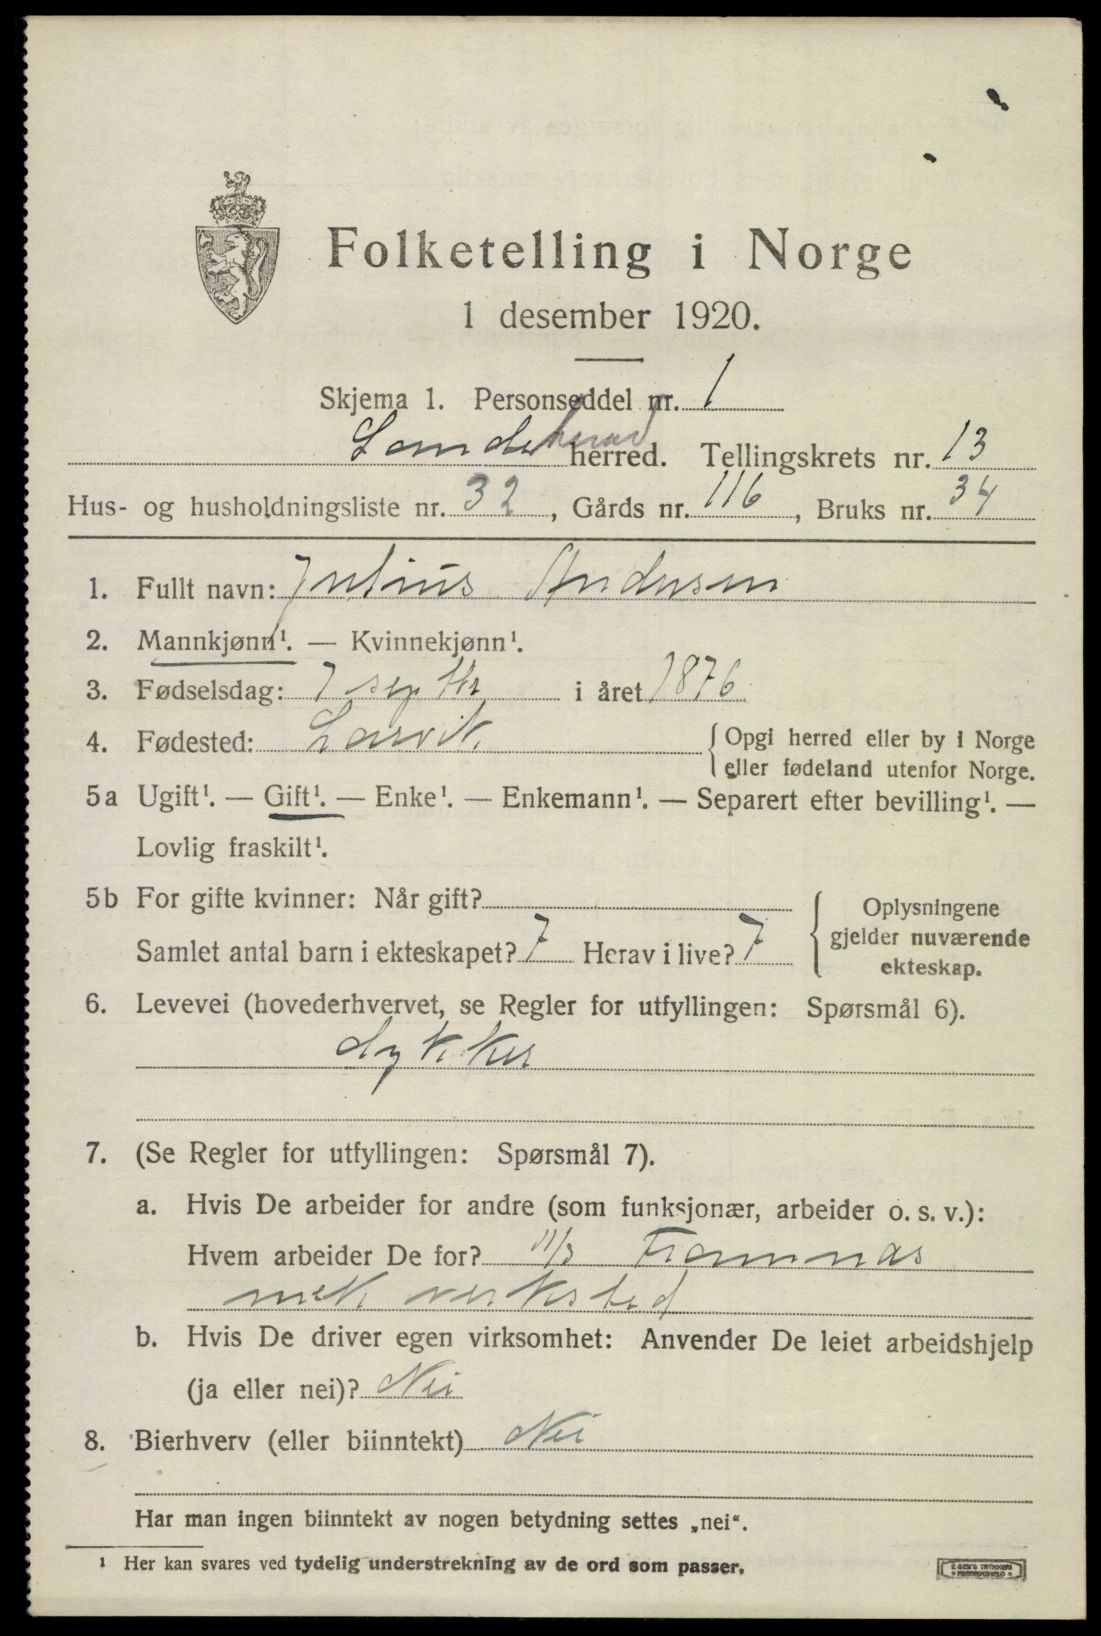 Folketelling i Norge
1 desember 1920.
Skjema 1. Personseddel nr. 1
Sandeherad herred. Tellingskrets nr. 13
Hus- og husholdningsliste nr. 32, Gårds nr. 116, Bruks nr. 34
1. Fullt navn: Julius Andersen
2. Mannkjønn¹. — Kvinnekjønn¹.
3. Fødselsdag: 7 septbr i året 1876
4. Fødested: Larvik {Opgi herred eller by i Norge
eller fødeland utenfor Norge.
5a Ugift¹. — Gift¹. — Enke¹. — Enkemann¹. — Separert efter bevilling¹. —
Lovlig fraskilt¹.
5b For gifte kvinner: Når gift? { Oplysningene
Samlet antal barn i ekteskapet? 7 Herav i live? 7 gjelder nuværende
ekteskap.
6. Levevei (hovederhvervet, se Regler for utfyllingen: Spørsmål 6).
dykker
7. (Se Regler for utfyllingen: Spørsmål 7).
a. Hvis De arbeider for andre (som funksjonær, arbeider o. s. v.):
Hvem arbeider De for? A/S Framnæs
mek verksted
b. Hvis De driver egen virksomhet: Anvender De leiet arbeidshjelp
(ja eller nei)? Nei
8. Bierhverv (eller biinntekt) Nei
Har man ingen biinntekt av nogen betydning settes „nei“.
¹ Her kan svares ved tydelig understrekning av de ord som passer.